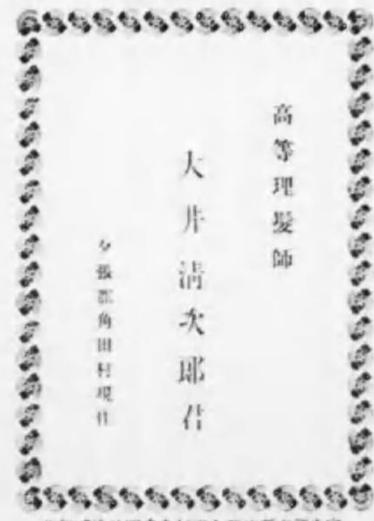 高等理髮師
大井淸次郎君
夕張郡角田村現住